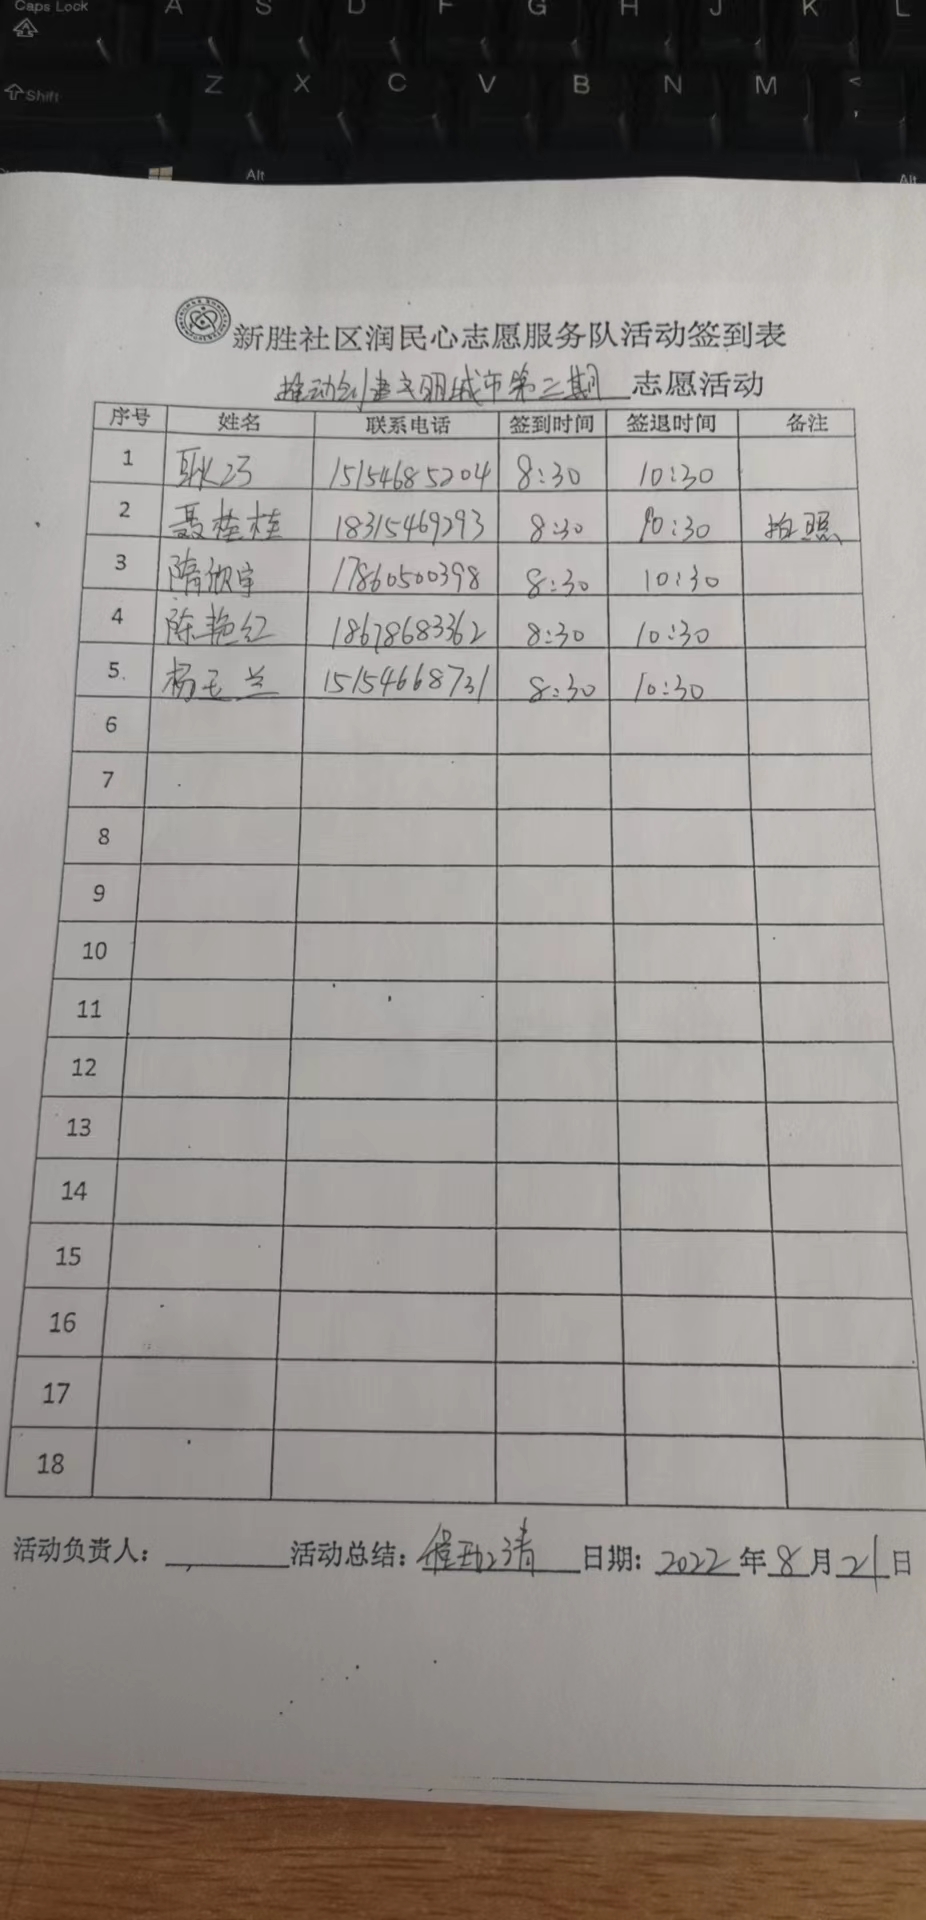 Caps Lock A S D F G H J K L
Shift Z X C V B N M <
,
Alt Alt
新胜社区润民心志愿服务队活动签到表
推动创建文明城市第三期 志愿活动
序号 姓名 联系电话 签到时间 签退时间 备注
1 15154685204 8:30 10:30
2 聂桂桂 18315469293 8:30 10:30 拍照
3 隋 17860500398 8:30 10:30
4 陈艳红 18678683362 8:30 10:30
5. 杨玉兰 15154668731 8:30 10:30
6
7
8
9
10
11
12
13
14
15
16
17
18
活动负责人: 活动总结: 日期: 2022 年 8 月 21 日